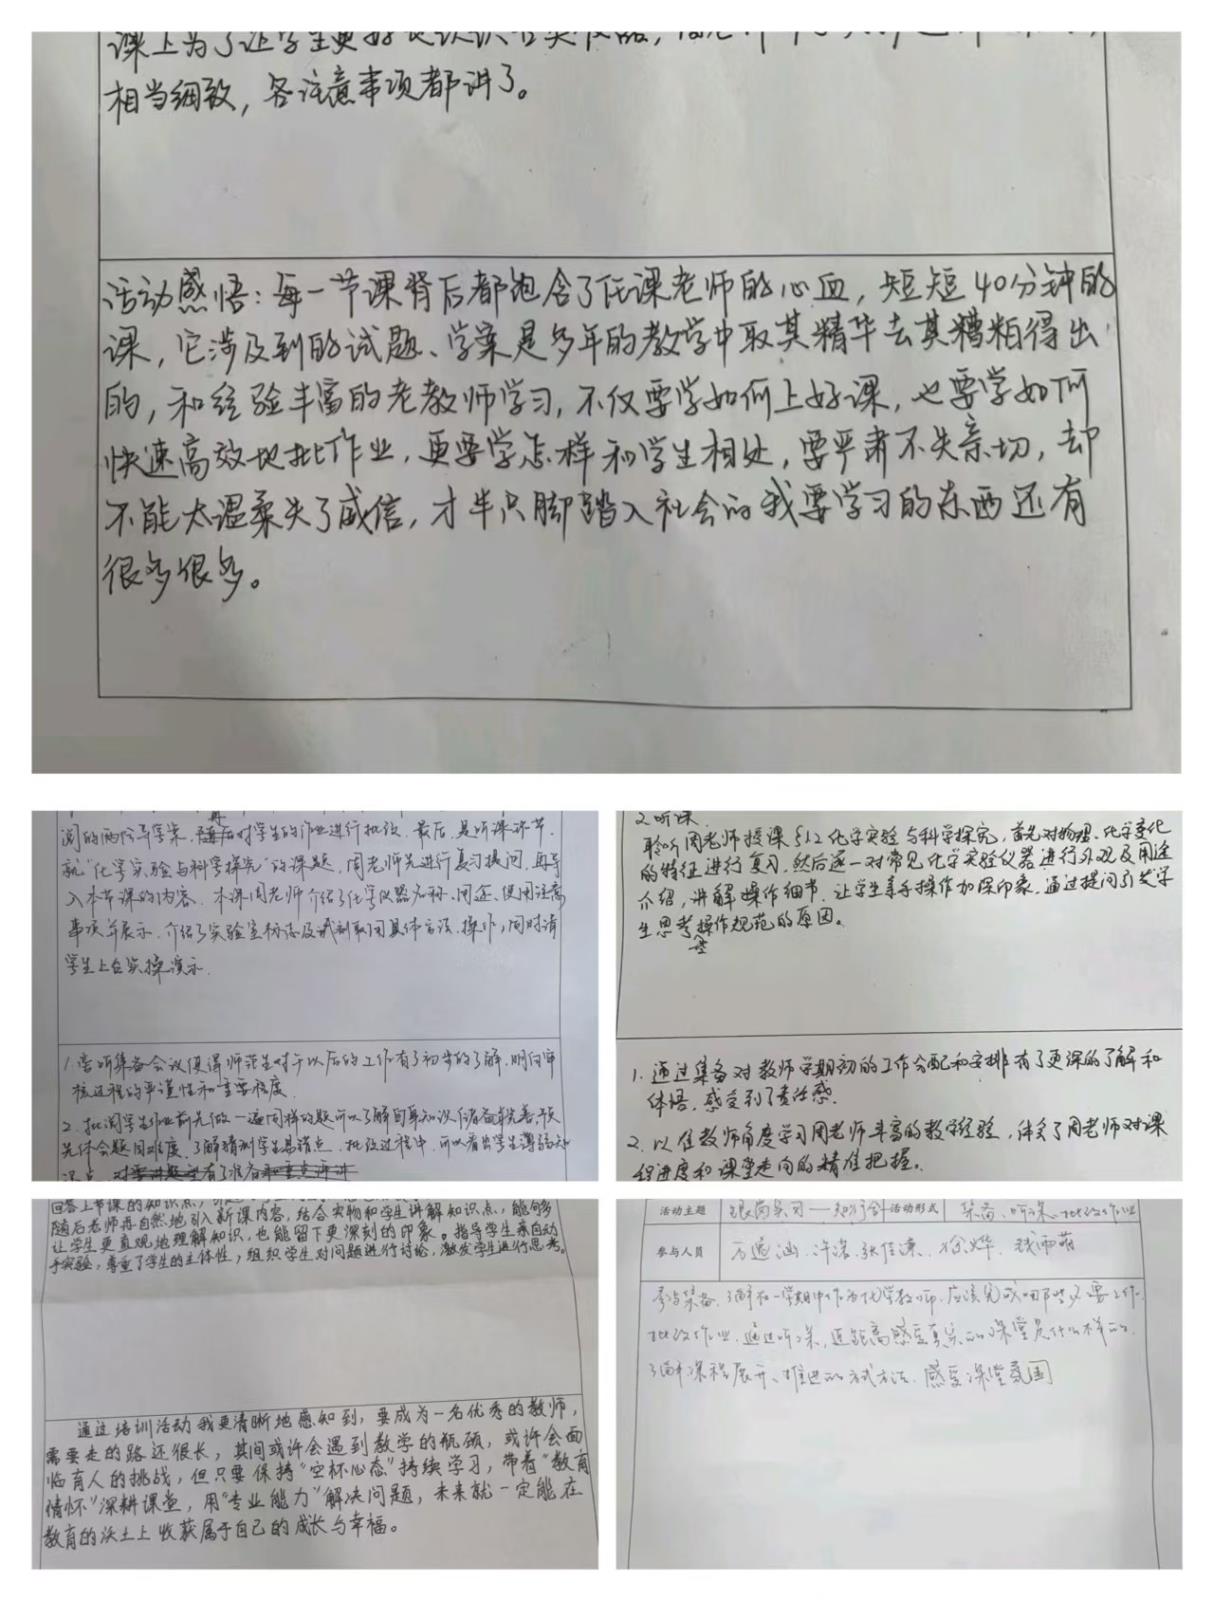 课上为了让学生更好
相当细致，各注意事项都讲了。
活动感悟：每一节课背后都饱含了任课老师的心血，短短40分钟的
课，它涉及到的试题、学案是多年的教学中取其精华去其糟粕得出
的，和经验丰富的老教师学习，不仅要学如何上好课，也要学如何
快速高效地批作业，更要学怎样和学生相处，要严肃不失亲切，却
不能太温柔失了威信，才半只脚踏入社会的我要学习的东西还有
很多很多。
对学生的作业进行批改。最后，是听课环节，
就“化学实验与科学探究”的课题，周老师先进行复习提问，再导
入本节课的内容。本课周老师介绍了化学仪器名称、用途、使用注意
事项并展示，介绍了实验室标志及试剂取用具体方法、操作，同时请
学生上台实操演示。
1. 旁听集备会议使得师范生对于以后的工作有了初步的了解，明白审
核过程的严谨性和重要程度
2. 批阅学生作业前先做一遍同样的题可以了解自身知识储备
先体会题目难度，了解猜测学生易错点，批改过程中，可以看出学生薄弱知
识点，
2. 听课
聆听周老师授课§1.2化学实验与科学探究，首先对物理、化学变化
的特征进行复习，然后逐一对常见化学实验仪器进行外观及用途
介绍，讲解操作细节，让学生亲手操作加深印象，通过提问引发学
生思考操作规范的原因。
1. 通过集备对教师学期初的工作分配和安排有了更深的了解和
体悟，感受到了责任感。
2. 以准教师角度学习周老师丰富的教学经验，体会了周老师对课
程进度和课堂走向的精准把握。
回答上节课的知识点，
随后老师再自然地引入新课内容，结合实物和学生讲解知识点，能够
让学生更直观地理解知识，也能留下更深刻的印象。指导学生亲自动
手实验，尊重了学生的主体性，组织学生对问题进行讨论，激发学生进行思考。
通过培训活动我更清晰地感知到，要成为一名优秀的教师，
需要走的路还很长，其间或许会遇到教学的瓶颈，或许会面
临育人的挑战，但只要保持“空杯心态”持续学习，带着“教育
情怀”深耕课堂，用“专业能力”解决问题，未来就一定能在
教育的沃土上收获属于自己的成长与幸福。
活动主题 跟岗实习—知行合 活动形式 集备、听课、批改作业
参与人员
参与集备，了解在一学期中作为化学教师，应该完成哪些必要工作。
批改作业。通过听课，近距离感受真实的课堂是什么样的，
了解课程展开、推进的方式方法，感受课堂氛围